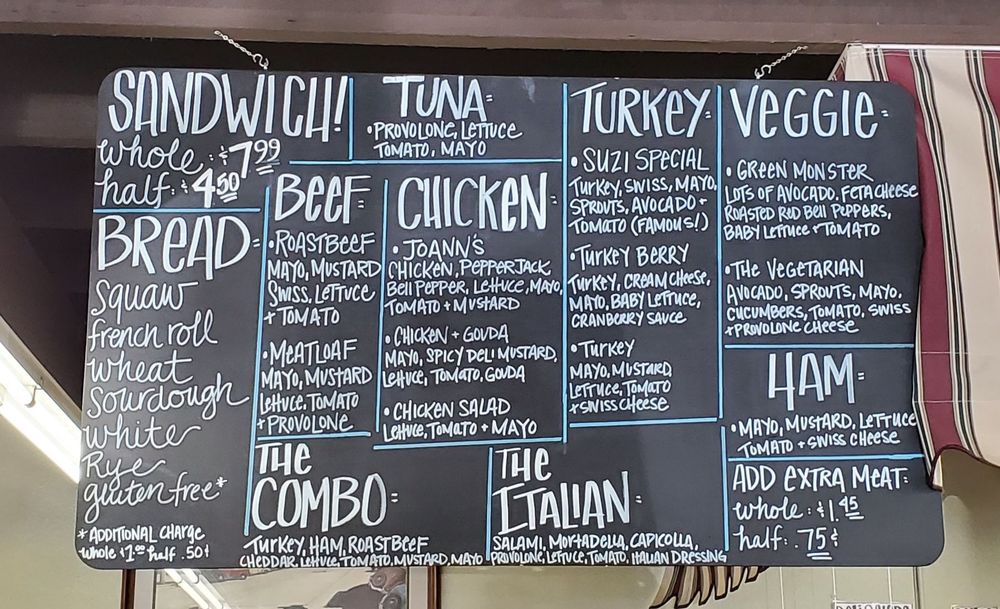 SANDWICH!
whole: $7.99
half: $4.50
BREAD:
squaw
french roll
wheat
sourdough
white
Rye
gluten free*
*ADDITIONAL CHARGE
whole $1.00 half .50¢
TUNA:
•PROVOLONE, LETTUCE
TOMATO, MAYO
BEEF:
•ROASTBEEF
MAYO, MUSTARD
SWISS, LETTUCE
+ TOMATO
•MEATLOAF
MAYO, MUSTARD
LETTUCE, TOMATO
+ PROVOLONE
CHICKEN:
•JOANN'S
CHICKEN, PEPPERJACK,
BELL PEPPER, LETTUCE, MAYO,
TOMATO + MUSTARD
•CHICKEN + GOUDA
MAYO, SPICY DELI MUSTARD,
LETTUCE, TOMATO, GOUDA
•CHICKEN SALAD
LETTUCE, TOMATO + MAYO
TURKEY:
•SUZI SPECIAL
TURKEY, SWISS, MAYO,
SPROUTS, AVOCADO +
TOMATO (FAMOUS!)
•TURKEY BERRY
TURKEY, CREAM CHEESE,
MAYO, BABY LETTUCE,
CRANBERRY SAUCE
•TURKEY
MAYO, MUSTARD
LETTUCE, TOMATO
+ SWISS CHEESE
VEGGIE:
•GREEN MONSTER
LOTS OF AVOCADO, FETA CHEESE
ROASTED RED BELL PEPPERS,
BABY LETTUCE + TOMATO
•THE VEGETARIAN
AVOCADO, SPROUTS, MAYO,
CUCUMBERS, TOMATO, SWISS
+ PROVOLONE CHEESE
HAM:
•MAYO, MUSTARD, LETTUCE
TOMATO + SWISS CHEESE
THE
COMBO:
TURKEY, HAM, ROASTBEEF
CHEDDAR, LETTUCE, TOMATO, MUSTARD, MAYO
THE
ITALIAN:
SALAMI, MORTADELLA, CAPICOLLA,
PROVOLONE, LETTUCE, TOMATO, ITALIAN DRESSING
ADD EXTRA MEAT:
whole: $1.45
half: .75¢